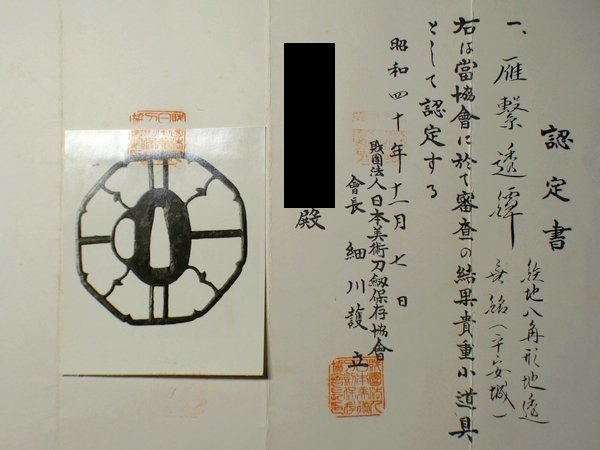 認定書
一、雁繋透鐔
鉄地八角形地透
無銘（平安城）
右は當協會に於て審査の結果貴重小道具
として認定する
昭和四十年十一月七日
財團法人日本美術刀劔保存協會
會長 細川護立
殿